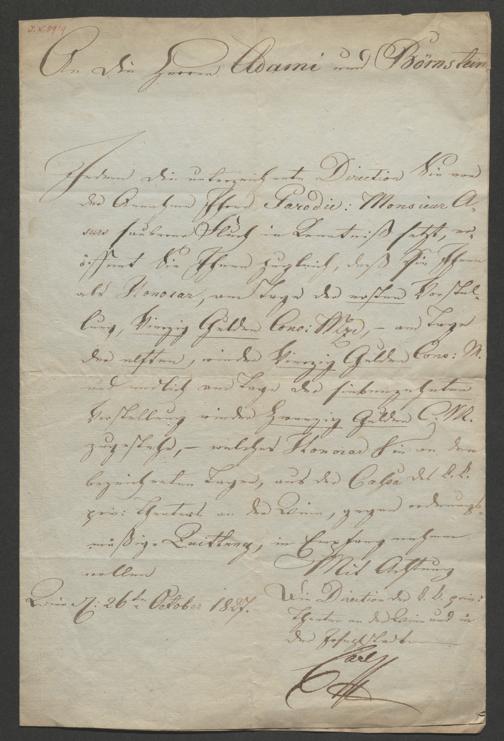 An die Herren Adami und Börnstein
Indem die unterzeichnete Direction Sie von
der Annahme Ihrer Parodie: Monsieur A-
surs sauberer Fluch in Kenntniß setzt, er-
öffnet Sie Ihnen zugleich, daß Sie Ihnen
als Honorar, am Tage der ersten Vorstel-
lung, Vierzig Gulden Conv: Mze, – am Tage
der elften, wieder Vierzig Gulden Conv: M.
und endlich am Tage der siebenzehnten
Vorstellung wieder Zwanzig Gulden C. M.
zugesteht, – welches Honorar Sie an den
bezeichneten Tagen, aus der Cassa des k. k.
priv: Theaters an der Wien, gegen ordnungs-
mäßige Quittung, in Empfang nehmen
wollen
Mit Achtung
Wien d: 26ten October 1827.
Die Direction der k. k. priv:
Theater an der Wien und in
der Josephstadt
Carl